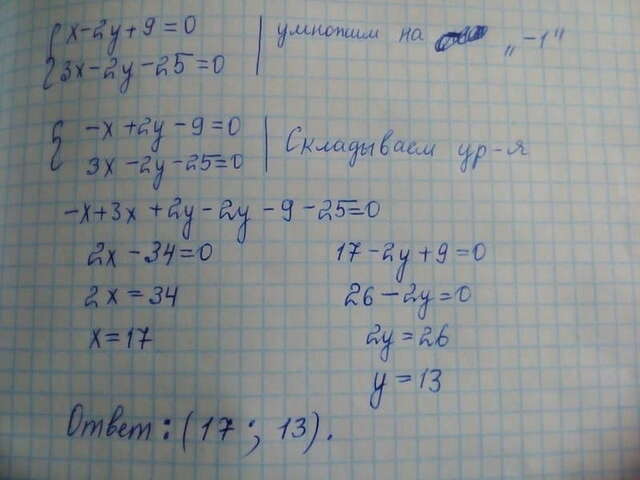 { x-2y+9=0 | умножим на „-1"
{ 3x-2y-25=0 |
{ -x+2y-9=0 | Складываем ур-я
{ 3x-2y-25=0 |
-x+3x+2y-2y-9-25=0
2x-34=0
2x=34
x=17
17-2y+9=0
26-2y=0
2y=26
y=13
Ответ: (17; 13).